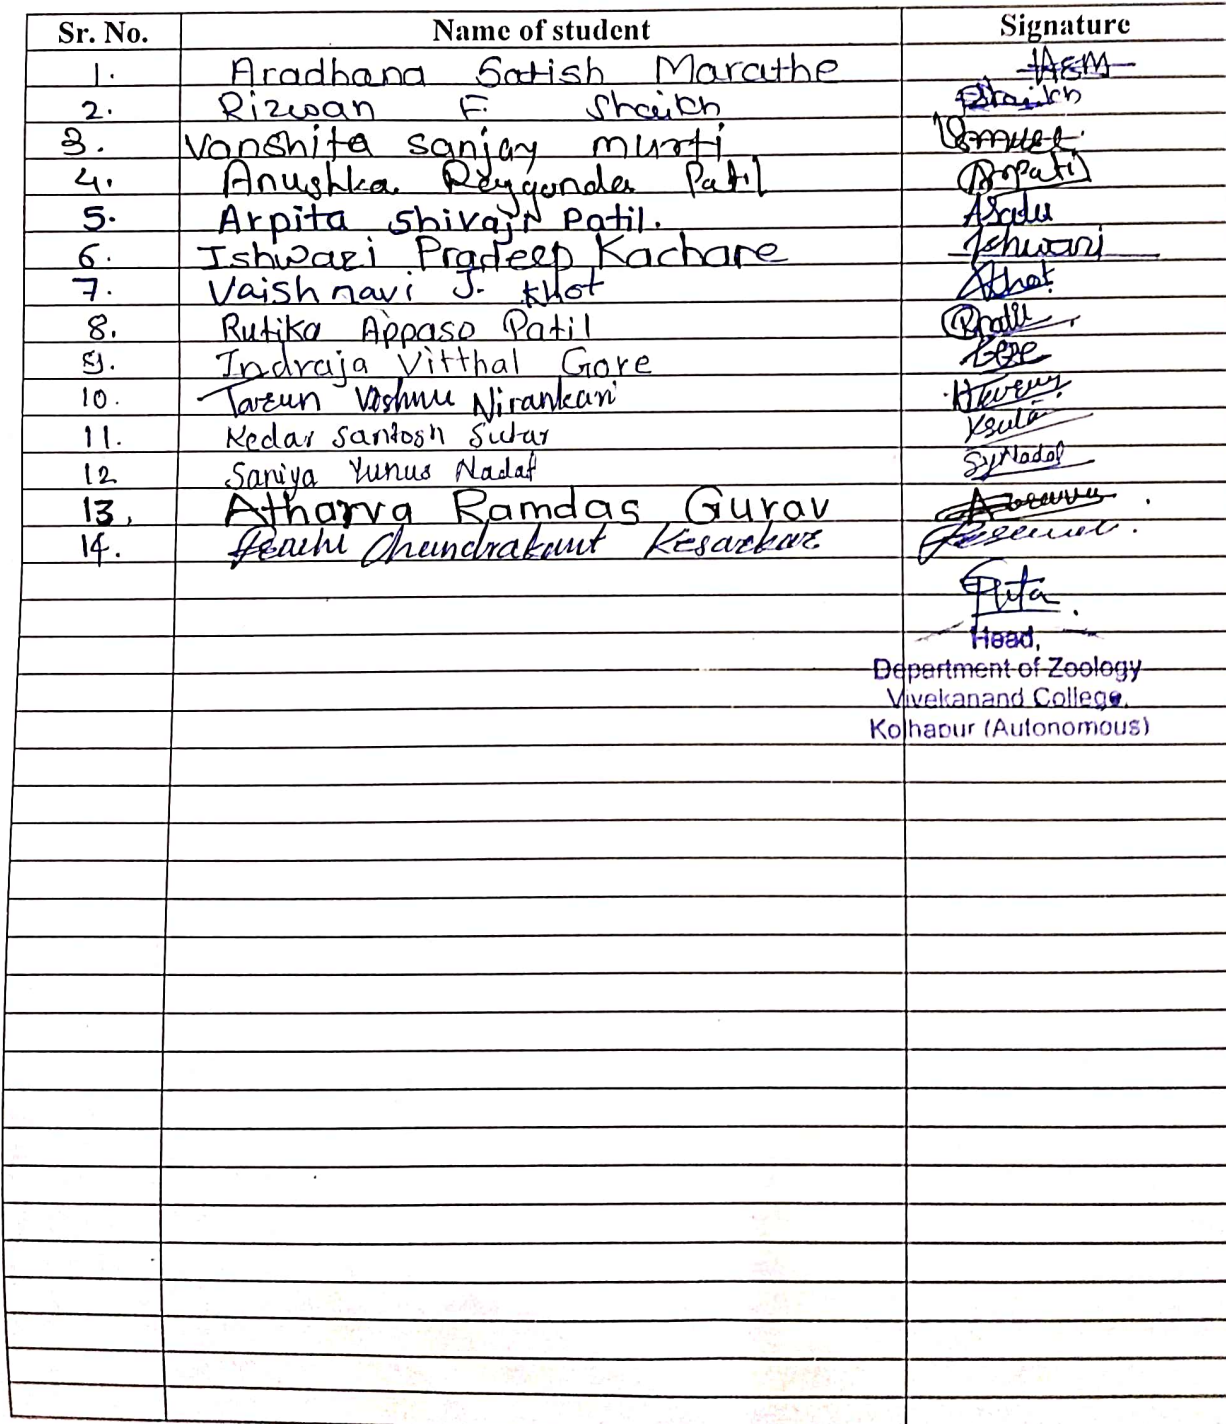 Sr. No. Name of student Signature
1. Aradhana Satish Marathe ASM
2. Rizwan F. Shaikh Shaikh
3. Vanshita sanjay murti
4. Anushka Raygonda Patil Arpatil
5. Arpita Shivaji Patil.
6. Ishwari Pradeep Kachare Ishwari
7. Vaishnavi J. Khot Khot
8. Rutika Appaso Patil
9. Indraja Vitthal Gore Gore
10. Tarun Vishnu Nirankari
11. Kedar Santosh Sutar
12 Saniya Yunus Nadaf SyNadaf
13, Atharva Ramdas Gurav
14. Chandrakant Kesarkar
Head,
Department of Zoology
Vivekanand College,
Kolhapur (Autonomous)